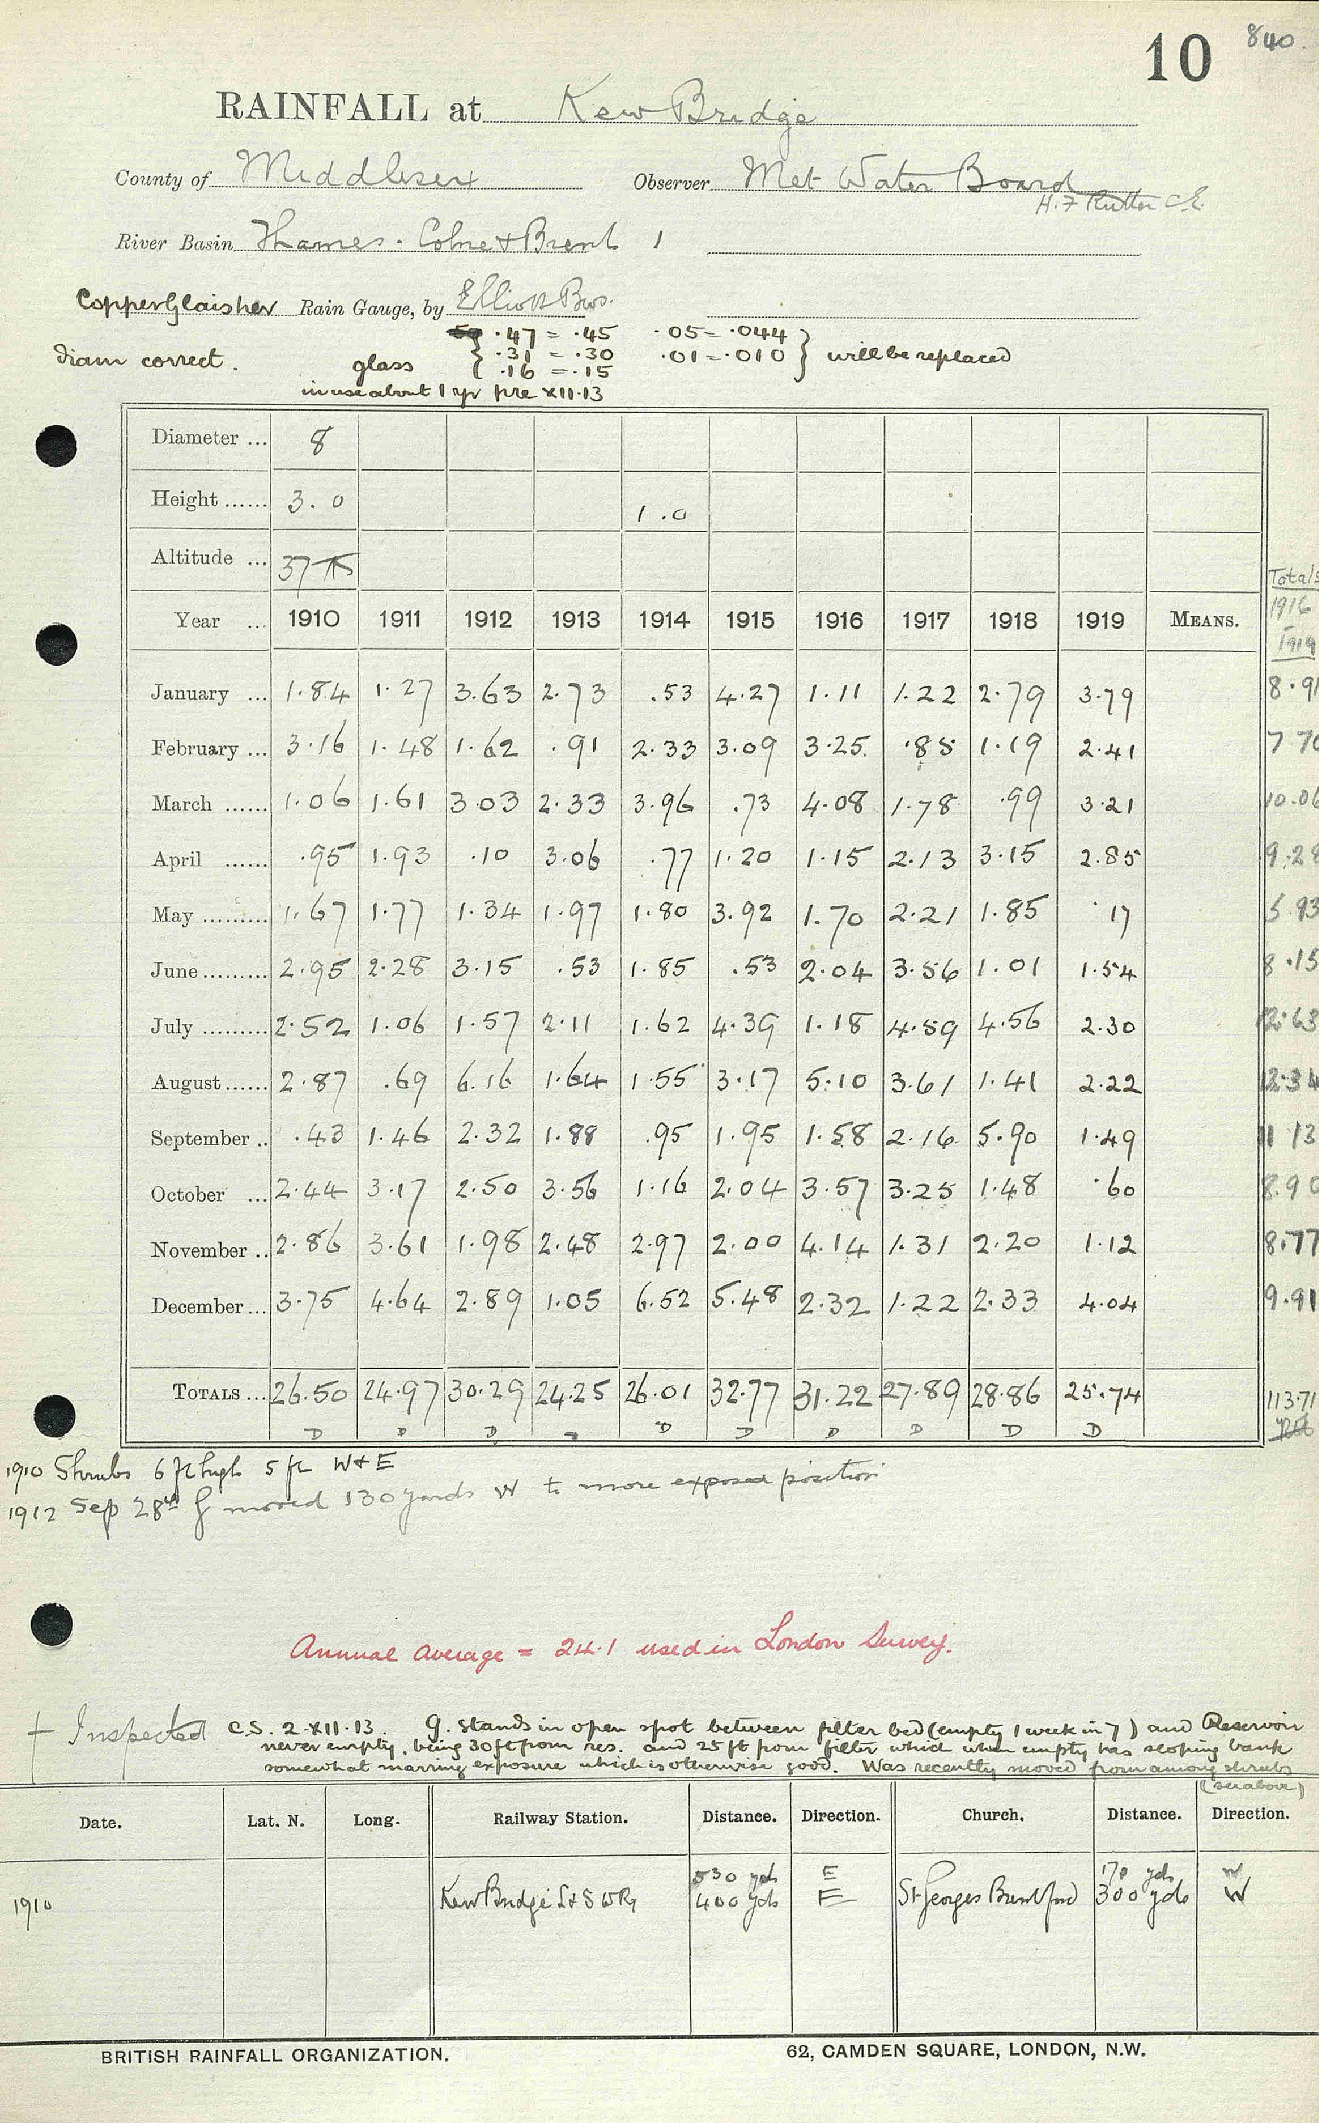 10 840.
RAINFALL at Kew Bridge
County of Middlesex Observer Met Water Board
H. F Rutter C.E.
River Basin Thames. Colne & Brent 1
Copper Glaisher Rain Gauge, by Elliott Bros.
.47 = .45 .05 = .044
diam correct. glass { .31 = .30 .01 = .010 } will be replaced
.16 = .15
in use about 1 yr pre XII.13
Diameter ... 8
Height ...... 3.0 1.0
Altitude ... 37
Totals
Year ... 1910 1911 1912 1913 1914 1915 1916 1917 1918 1919 MEANS. 1916 - 1919
January ... 1.84 1.27 3.63 2.73 .53 4.27 1.11 1.22 2.79 3.79 8.91
February ... 3.16 1.48 1.62 .91 2.33 3.09 3.25 .85 1.19 2.41 7 70
March ...... 1.06 1.61 3.03 2.33 3.96 .73 4.08 1.78 .99 3.21 10.06
April ...... .95 1.93 .10 3.06 .77 1.20 1.15 2.13 3.15 2.85 9.28
May ......... 1.67 1.77 1.34 1.97 1.80 3.92 1.70 2.21 1.85 .17 5 93
June ......... 2.95 2.28 3.15 .53 1.85 .53 2.04 3.56 1.01 1.54 8.15
July ......... 2.52 1.06 1.57 2.11 1.62 4.39 1.18 4.59 4.56 2.30 12.63
August ...... 2.87 .69 6.16 1.64 1.55 3.17 5.10 3.61 1.41 2.22 12.34
September .. .43 1.46 2.32 1.88 .95 1.95 1.58 2.16 5.90 1.49 11 13
October ... 2.44 3.17 2.50 3.56 1.16 2.04 3.57 3.25 1.48 .60 8.90
November .. 2.86 3.61 1.98 2.48 2.97 2.00 4.14 1.31 2.20 1.12 8.77
December ... 3.75 4.64 2.89 1.05 6.52 5.48 2.32 1.22 2.33 4.04 9.91
TOTALS ... 26.50 24.97 30.29 24.25 26.01 32.77 31.22 27.89 28.86 25.74 113.71
D D D D D D D D D D
1910 Shrubs 6 ft high 5 ft W & E
1912 Sep 28th G moved 130 yards W to more exposed position
Annual average = 24.1 used in London Survey.
† Inspected C.S. 2.XII.13. G. stands in open spot between filter bed (empty 1 week in 7) and Reservoir
never empty, being 30 ft from res. and 25 ft from filter which when empty has sloping bank
somewhat marring exposure which is otherwise good. Was recently moved from among shrubs
(see above)
Date. Lat. N. Long. Railway Station. Distance. Direction. Church. Distance. Direction.
530 yds E 170 yds W
1910 Kew Bridge L & S W Ry 400 yds E St Georges Brentford 300 yds W
BRITISH RAINFALL ORGANIZATION. 62, CAMDEN SQUARE, LONDON, N.W.